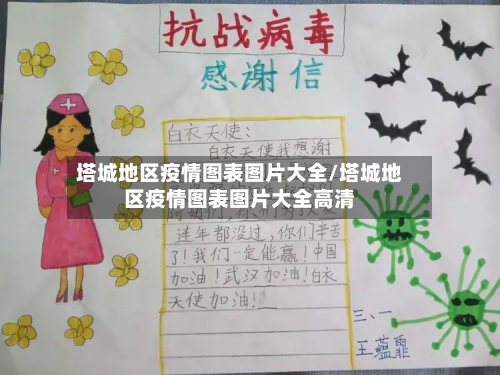 抗战病毒
感谢信
白衣天使：
白衣天使我想谢
塔城地区疫情图表图片大全/塔城地
区疫情图表图片大全高清
连年都没过，你们辛苦
了！我们一定能赢！中国
加油！武汉加油！白衣
天使加油！
三、一
王蕴霏